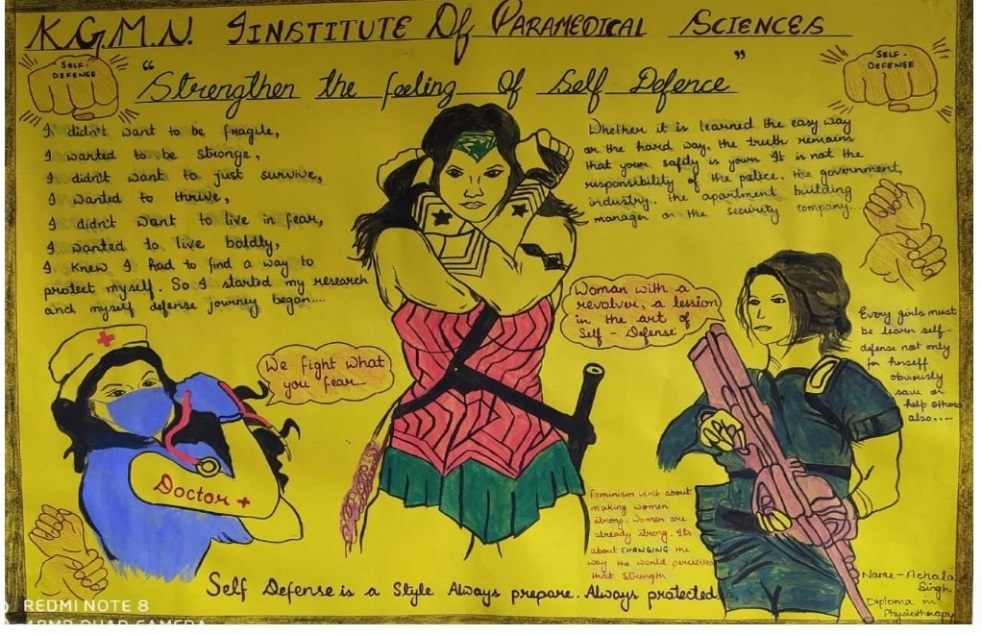 K.G.M.U. IINSTITUTE Of PARAMEDICAL SCIENCES
SELF-
DEFENSE
SELF-
DEFENSE
"Strengthen the feeling Of Self Defence"
I didn't want to be fragile,
I wanted to be stronge,
I didn't want to just survive,
I wanted to thrive,
I didn't want to live in fear,
I wanted to live boldly,
I Knew I had to find a way to
protect myself. So I started my research
and myself defense journey began....
Whether it is learned the easy way
or the hard way, the truth remains
that your safety is yours It is not the
responsibility of the police, the government,
industry, the apartment building
manager or the security company...
Woman with a
revolver, a lession
in the art of
Self - Defense
Every girls must
be learn self-
defense not only
for herself
obviously
save or
help others
also....
We fight what
you fear...
Doctor +
Feminism isn't about
making women
strong. Women are
already strong. Its
about CHANGING the
way the world perceives
that strength.
Self Defense is a Style Always prepare. Always protected.
Name - Achala
Singh
Diploma in
Physiotherapy
REDMI NOTE 8
48MP QUAD CAMERA